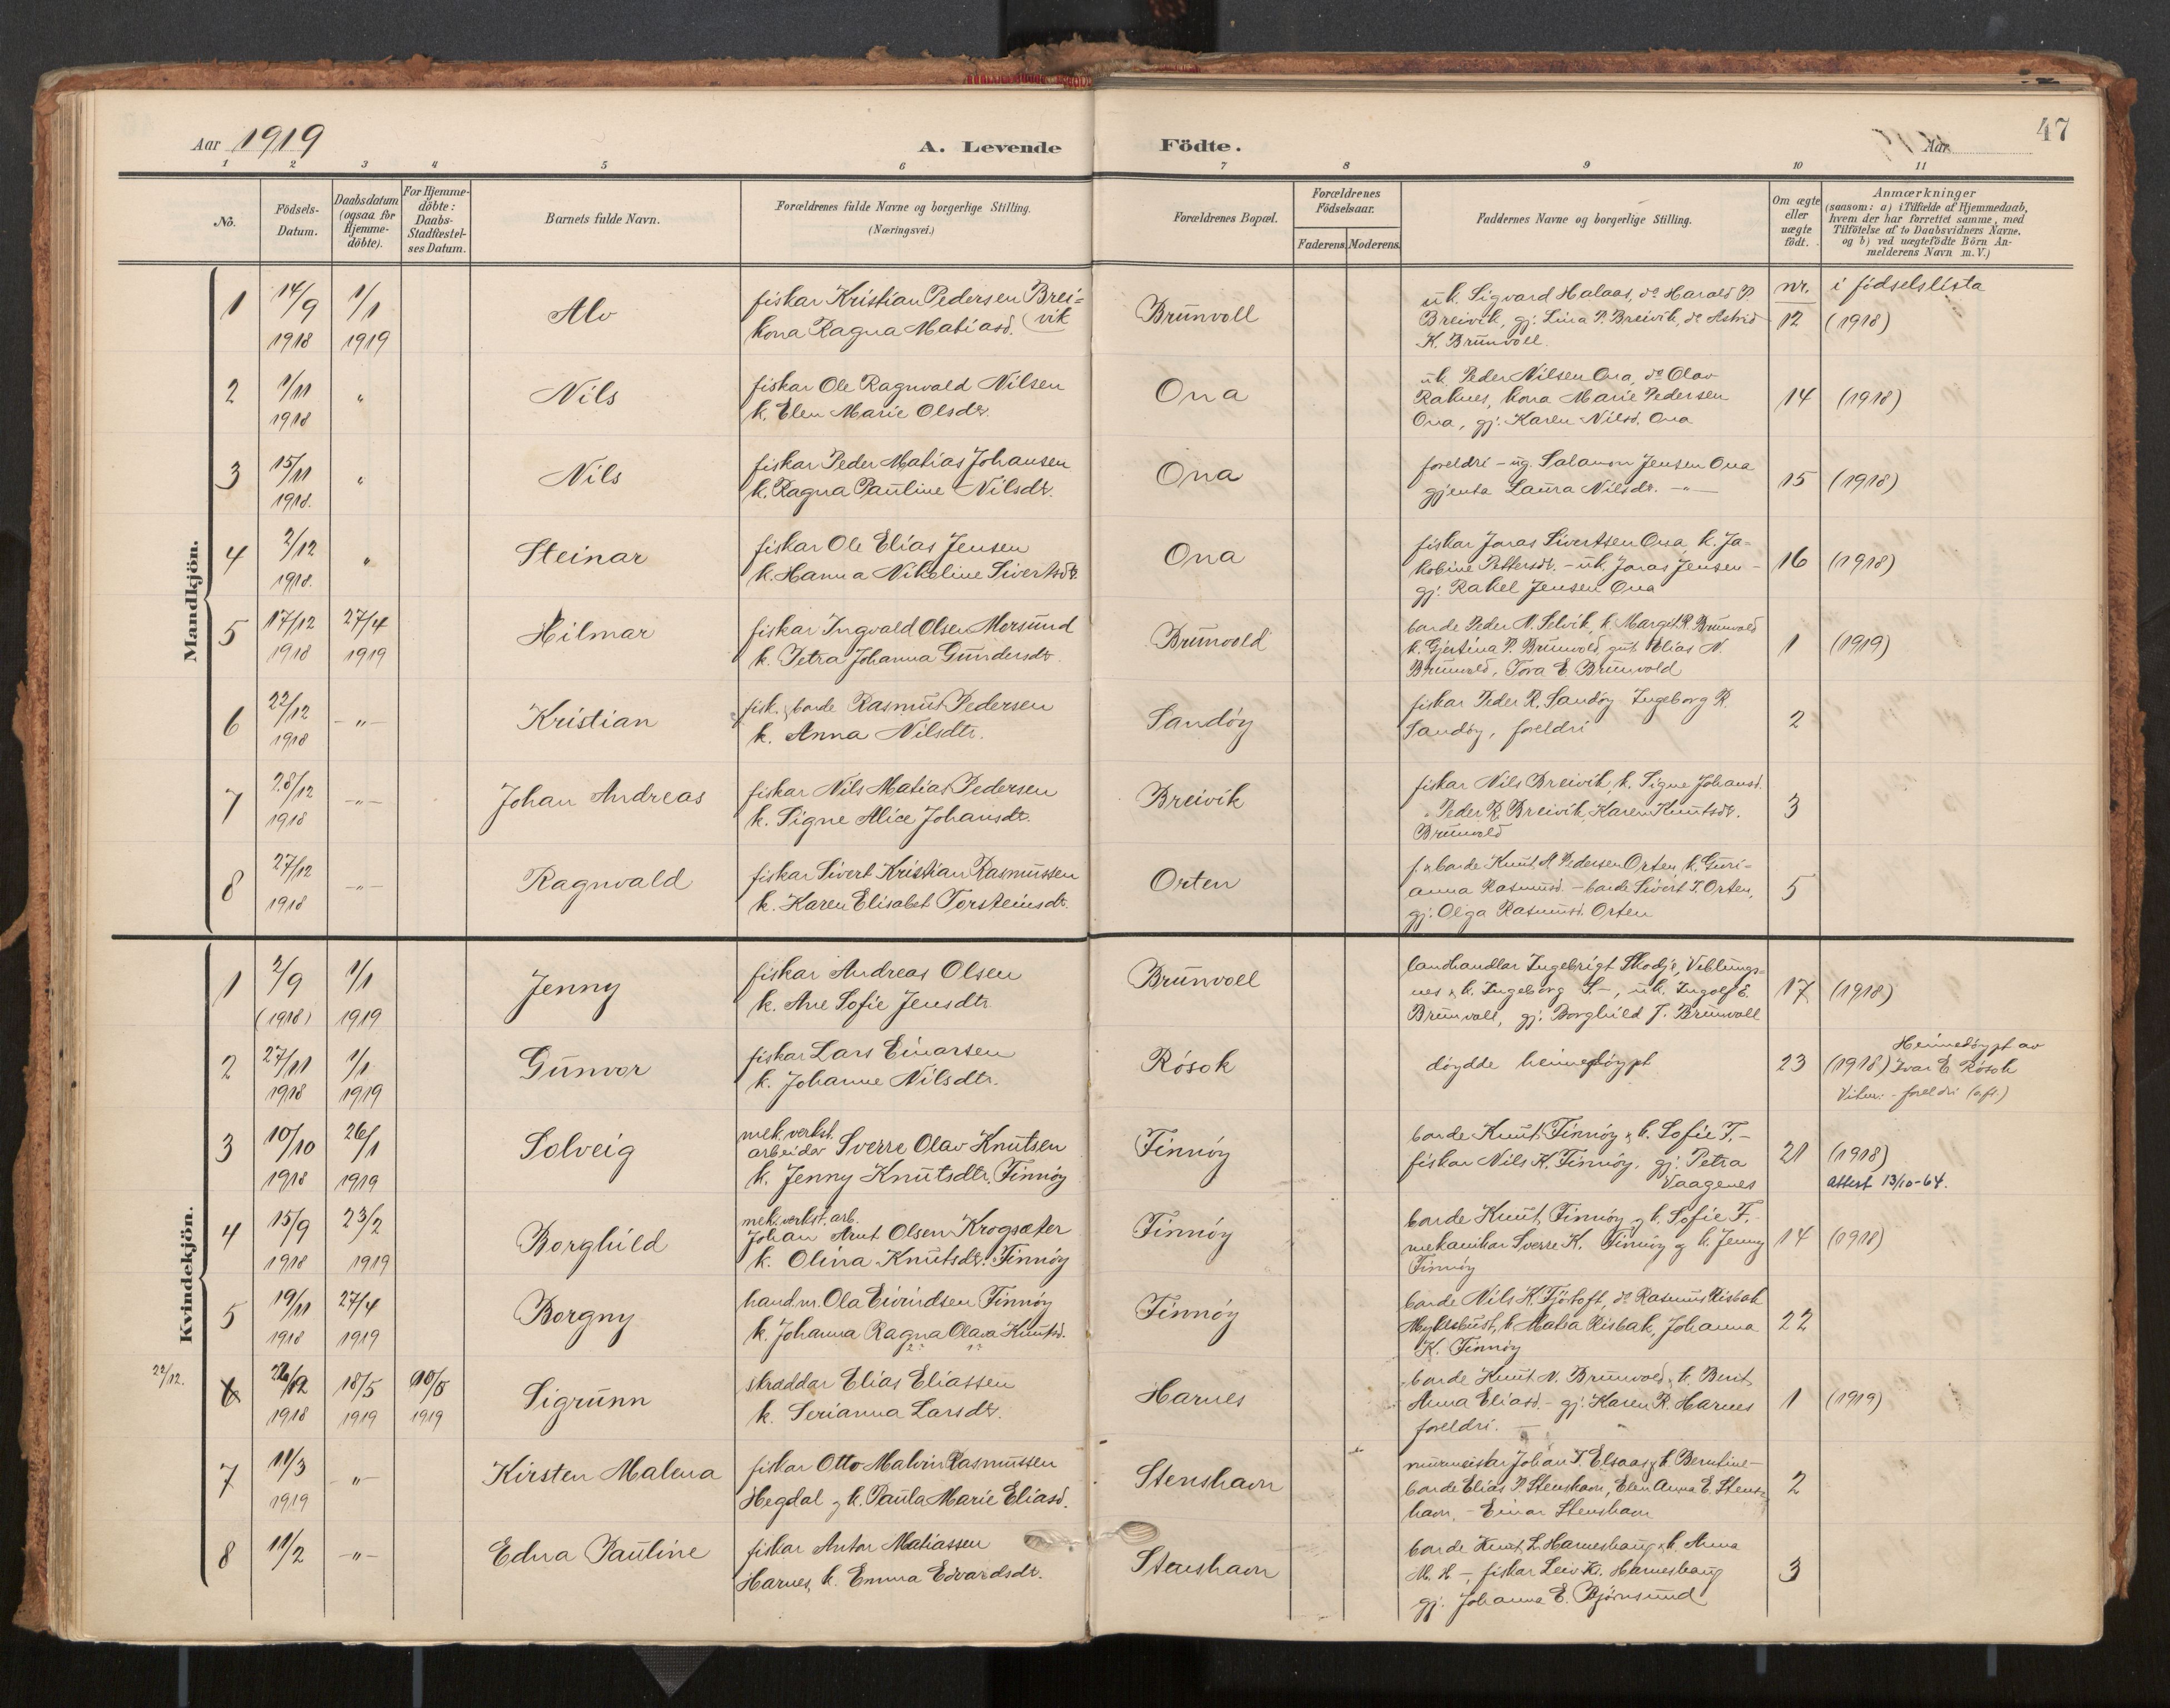 Aar 1919
A. Levende Födte.
Aar
47
1 2 3 4 5 6 7 8 9 10 11
No.
Födsels-Datum.
Daabsdatum (ogsaa for Hjemme-döbte).
For Hjemme-döbte: Daabs-Stadfæstel-ses Datum.
Barnets fulde Navn.
Forældrenes fulde Navne og borgerlige Stilling.
(Næringsvei.)
Forældrenes Bopæl.
Forældrenes Födselsaar.
Faderens. Moderens.
Faddernes Navne og borgerlige Stilling.
Om ægte eller uægte födt.
Anmærkninger
(saasom: a) i Tilfælde af Hjemmedaab,
hvem der har forrettet samme, med
Tilföielse af to Daabsvidners Navne.
og b) ved uægtefödte Börn An-
melderens Navn m.V.)
Mandkjön.
nr. i födselslista
1 14/9 1918 1/1 1919 Alv
fiskar Kristian Pedersen Brei=
kona Ragna Matiasd. (vik
Brünvoll
uk. Sigvard Halaas, do Harald P.
Breivik, gj. Lina P. Breivik, do Astrid
K. Brünvoll.
12 (1918)
2 1/11 1918 " Nils
fiskar Ole Ragnvald Nilsen
k. Elen Marie Olsdr.
Ona
uk. Peder Nilsen Ona, do Olav
Raknes, kona Marie Pedersen
Ona, gj. Karen Nilsd. Ona
14 (1918)
3 15/11 1918. " Nils
fiskar Peder Matias Johansen
k. Ragna Pauline Nilsdt.
Ona
foreldri - ug. Salamon Jensen Ona
gjenta Laura Nilsdr. -"-
15 (1918)
4 2/12 1918. " Steinar
fiskar Ole Elias Jensen
k. Hanna Nikoline Sivertsdr.
Ona
fiskar Jonas Sivertsen Ona, k. Ja=
kobine Pettersdr. - uk. Jonas Jensen -
gj. Rakel Jensen Ona
16 (1918)
5 17/12 1918 27/4 1919 Hilmar
fiskar Ingvald Olsen Morsund
k. Petra Johanna Gundersdr.
Brünvold
bonde Peder N. Selvik, k. Margit R. Brünvold
k. Gjertina P. Brünvold, gut Elias N.
Brünvold, Tora E. Brünvold
1 (1919)
6 22/12 1918 -"- Kristian
fisk. & bonde Rasmus Pedersen
k. Anna Nilsdtr.
Sandöy
fiskar Peder R. Sandöy Ingeborg R.
Sandöy, foreldri
2
7 28/12 1918 -"- Johan Andreas
fiskar Nils Matias Pedersen
k. Signe Alice Johansdt.
Breivik
fiskar Nils Breivik, k. Signe Johansd.
Peder R. Breivik, Karen Knutsdr.
Brünvold
3
8 27/12 1918 -"- Ragnvald
fiskar Sivert Kristian Rasmussen
k. Karen Elisabet Torsteinsdt.
Orten
f. & bonde Knut A. Pedersen Orten, k. Guri=
anna Rasmusd. - bonde Sivert T. Orten,
gj. Olga Rasmusd. Orten
5
Kvindekjön.
1 2/9 (1918) 1/1 1919 Jenny
fiskar Andreas Olsen
k. Ane Sofie Jensdtr.
Brünvoll
landhandlar Ingebrigt Skodje, Veblungs=
nes & k. Ingeborg S. -, uk. Ingolf E.
Brünvoll, gj. Borghild J. Brünvoll
17 (1918)
2 27/11 1918 1/1 1919 Gunvor
fiskar Lars Einarsen
k. Johanne Nilsdtr.
Rösok
döydde heimedöypt
23 (1918)
Heimedöypt av
Ivar E. Rösok
Vitner: - foreldri
3 10/10 1918 26/1 1919 Solveig
mek. verkst.
arbeidar Sverre Olav Knutsen
k. Jenny Knutsdtr. Finnöy
Finnöy
bonde Knut Finnöy & k. Sofie F. -
fiskar Nils K. Finnöy, gj. Petra
Vaagenes
21 (1918)
Attest 13/10-64.
4 15/9 1918 23/2 1919 Borghild
mek. verkst. arb.
Johan Arnt Olsen Krogsæter
k. Olina Knutsdr. Finnöy
Finnöy
bonde Knut Finnöy og k. Sofie F. -
mekanikar Sverre K. Finnöy og k. Jenny
Finnöy
14 (1918)
5 19/11 1918 27/4 1919 Borgny
hand.m. Ola Eivindsen Finnöy
k. Johanna Ragna Olava Knutsd.
Finnöy
bonde Nils K. Fjörtoft, do Rasmus Risbak
Myklebust, k. Matea Risbak, Johanna
K. Finnöy
22
22/12.
6 1918 18/5 1919 1919 Sigrunn
skræddar Elias Eliassen
k. Serianna Larsdr.
Harnes
bonde Knut N. Brünvold, k. Berit
Anna Eliasd. - gj. Karen R. Harnes
foreldri.
1 (1919)
7 11/3 1919 -"- Kirsten Malena
fiskar Otto Malvin Rasmussen
Hegdal og k. Paula Marie Eliasd.
Stenshavn
murmeistar Johan T. Elsaas & k. Berntine -
bonde Elias P. Stenshavn, Elen Anna E. Stens=
havn, - Einar Stenshavn
2
8 11/2 -"- Edna Pauline
fiskar Anton Matiassen
Harnes, k. Emma Edvardsdt.
Stenshavn
bonde Knut L. Harneshaug & k. Anna
M. H -, fiskar Leiv K. Harneshaug
gj. Johanna E. Björnsund
3